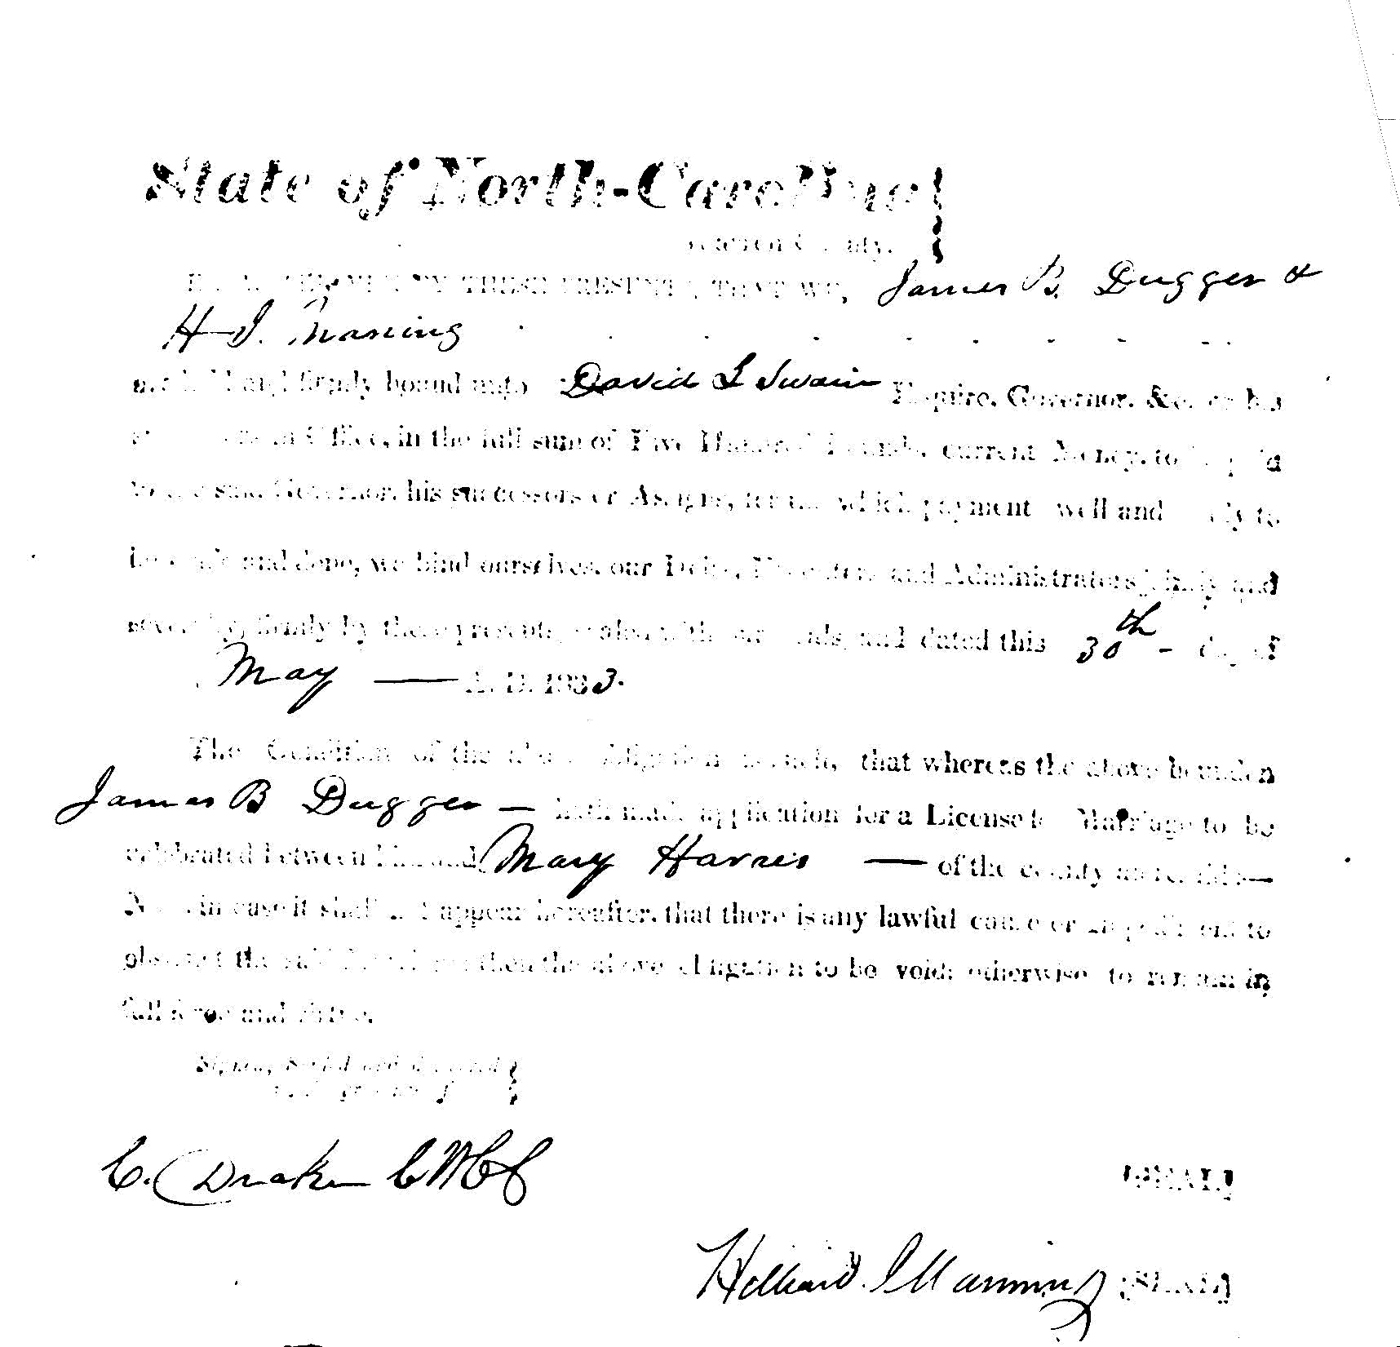 State of North-Carolina
County.
THESE PRESENTS, THAT WE, James B. Dugger &
H J. Maning
and firmly bound unto David L Swain Esquire, Governor, &c. or his
in Office, in the full sum of Five Hundred Pounds, current Money, to be paid
to the said Governor, his successors or Assigns, for the which payment well and truly to
be made and done, we bind ourselves, our Heirs, Executors and Administrators, jointly and
severally, firmly by these presents, sealed with our seals, and dated this 30th - day of
May — A. D. 1833.
The Condition of the above obligation is such, that whereas the above bounden
James B Dugger — hath made application for a License for Marriage to be
celebrated between him and Mary Harris — of the county aforesaid—
Now in case it shall not appear hereafter, that there is any lawful cause or impediment to
obstruct the said then the above obligation to be void; otherwise to remain in
full force and virtue.
Signed, Sealed and
C. Drake CWCC
[SEAL]
Hilliard J Manning [SEAL]